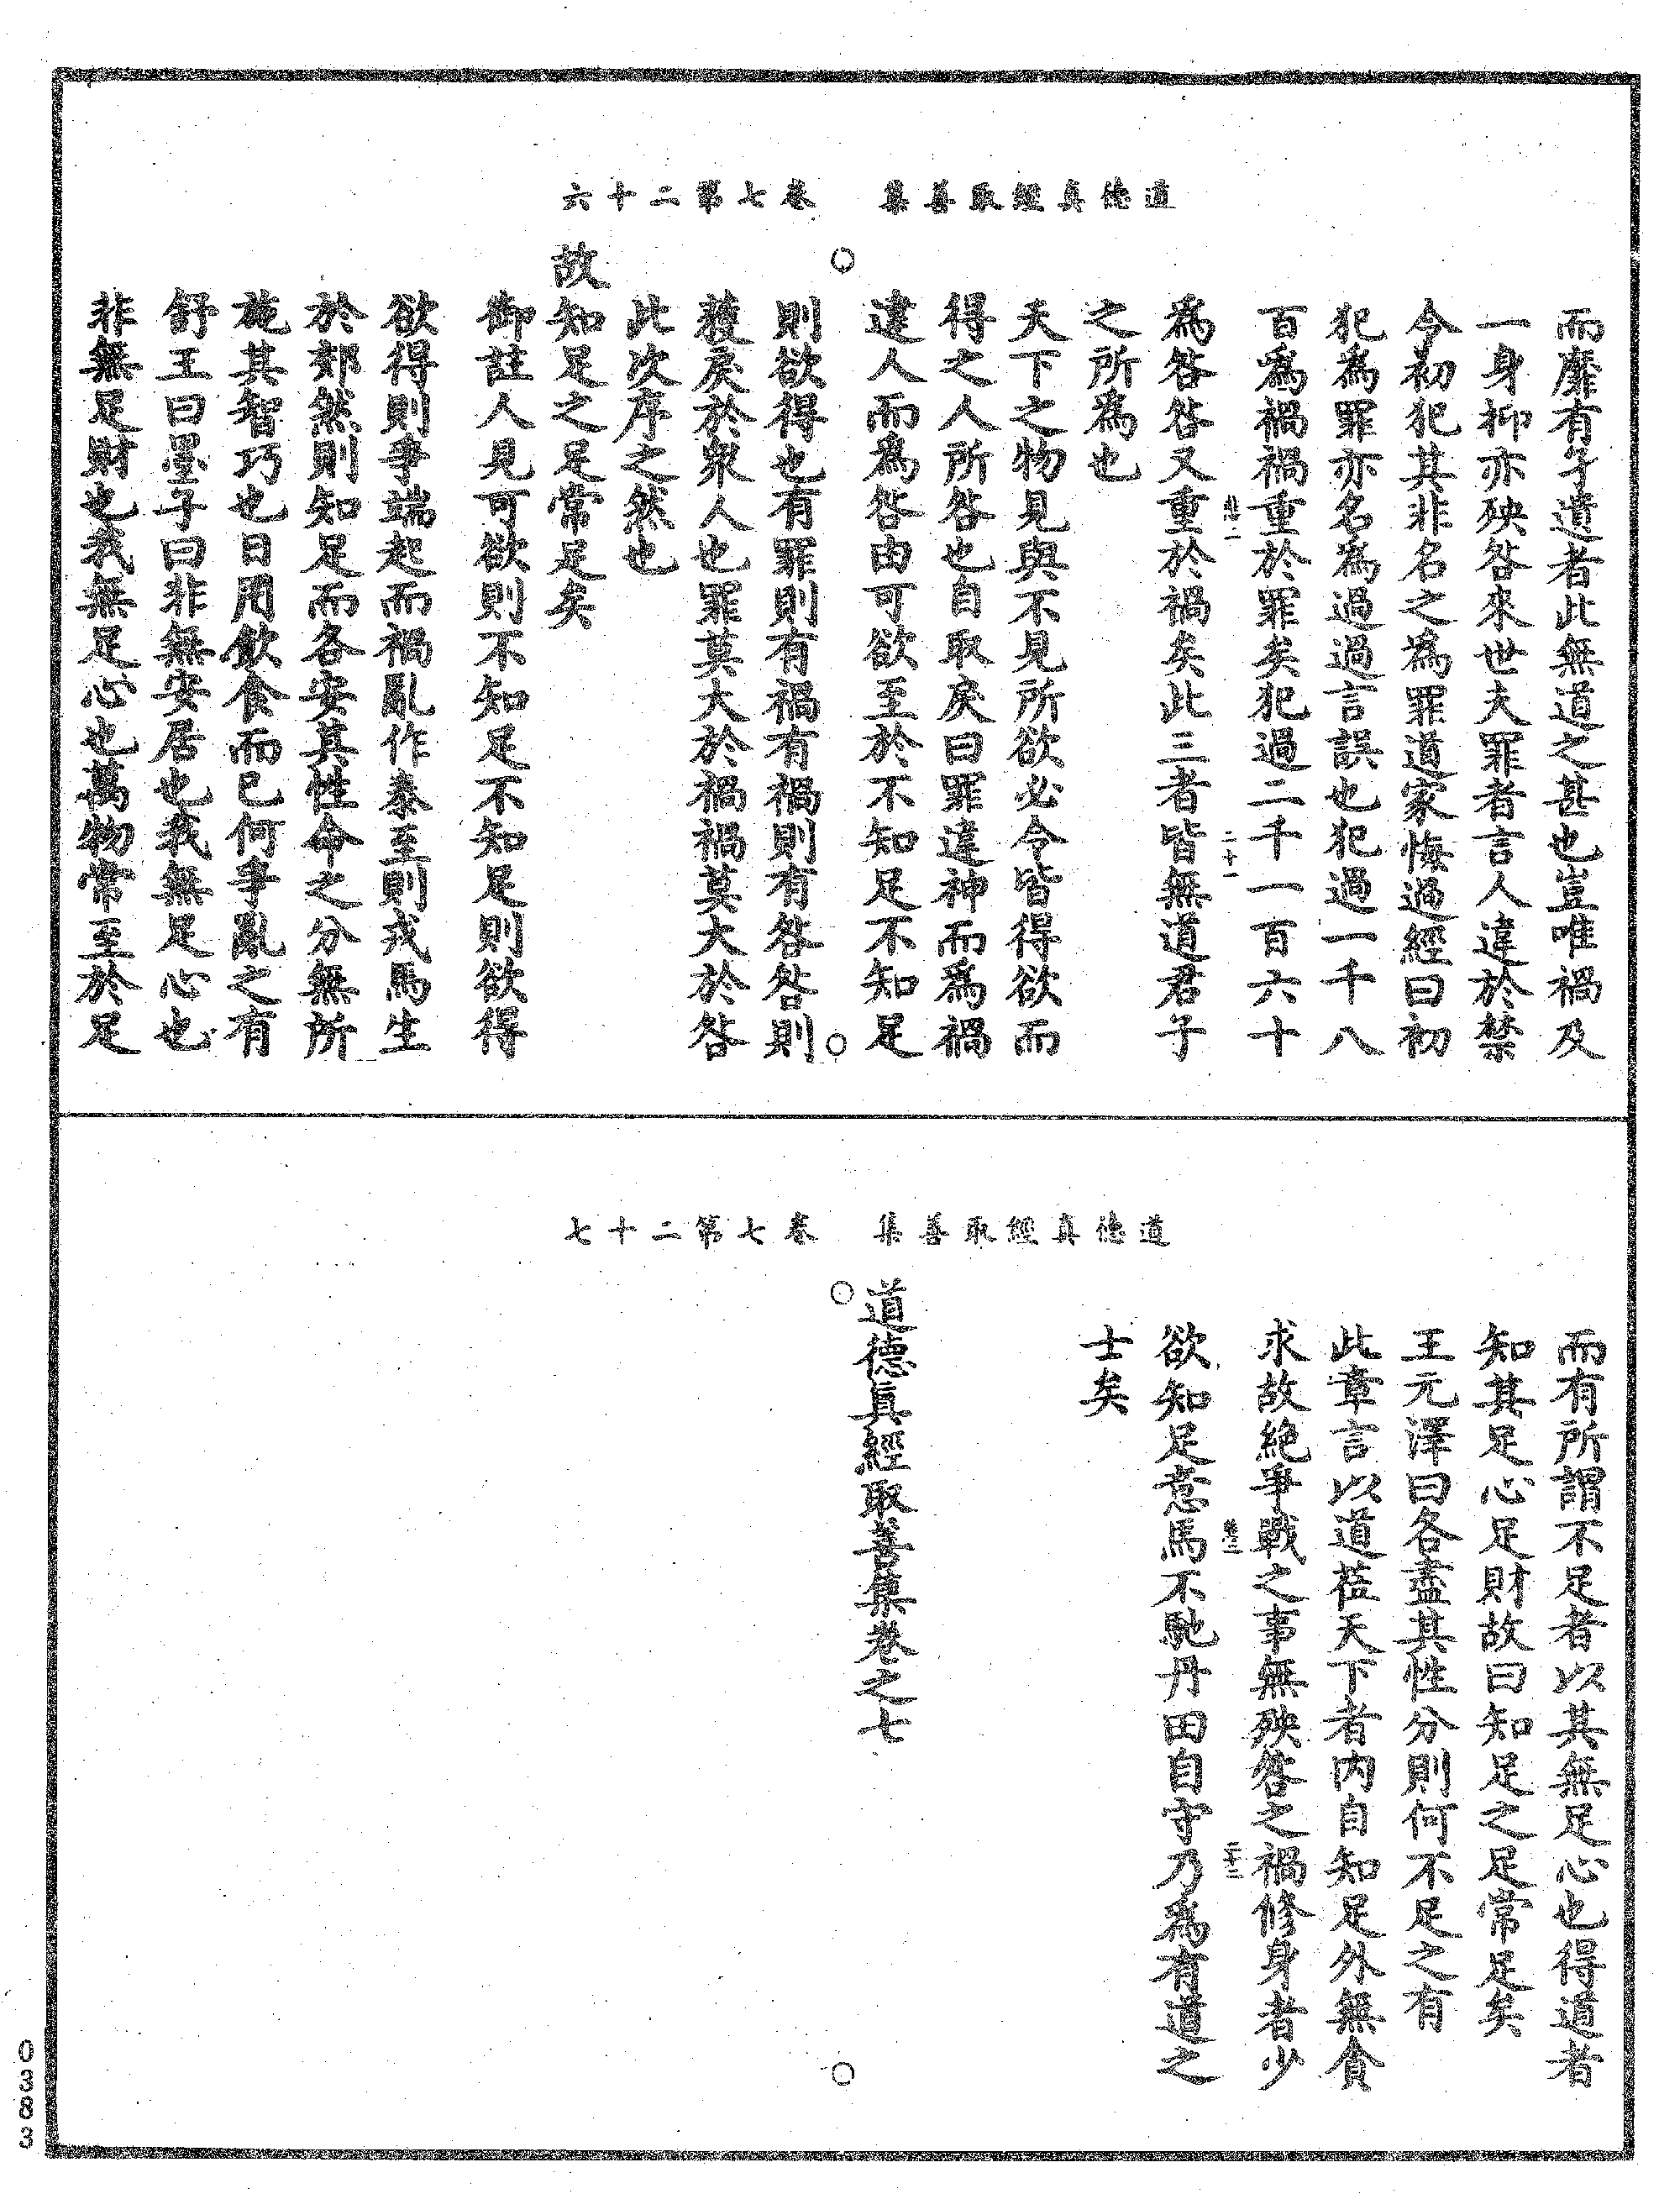 道德真經取善集　卷七第二十六
而靡有孑遺者此無道之甚也豈唯禍及
一身抑亦殃咎來世夫罪者言人違於禁
今初犯其非名之為罪道家悔過經曰初
犯為罪亦名為過過言誤也犯過一千八
百為禍禍重於罪矣犯過二千一百六十
二十一
為咎咎又重於禍矣此三者皆無道君子
之所為也
天下之物見與不見所欲必令皆得欲而
得之人所咎也自取戾曰罪違神而為禍
違人而為咎由可欲至於不知足不知足
則欲得也有罪則有禍有禍則有咎咎則
獲戾於衆人也罪莫大於禍禍莫大於咎
此次序之然也
故知足之足常足矣
御註人見可欲則不知足不知足則欲得
欲得則爭端起而禍亂作泰至則戎馬生
於郊然則知足而各安其性命之分無所
施其智巧也日用飲食而已何爭亂之有
舒王曰墨子曰非無安居也我無足心也
非無足財也我無足心也萬物常至於足
道德真經取善集　卷七第二十七
而有所謂不足者以其無足心也得道者
知其足心足財故曰知足之足常足矣
王元澤曰各盡其性分則何不足之有
此章言以道莅天下者內自知足外無貪
求故絕爭戰之事無殃咎之禍修身者少
二十二
欲知足意馬不馳丹田自守乃為有道之
士矣
道德眞經取善集卷之七
0383